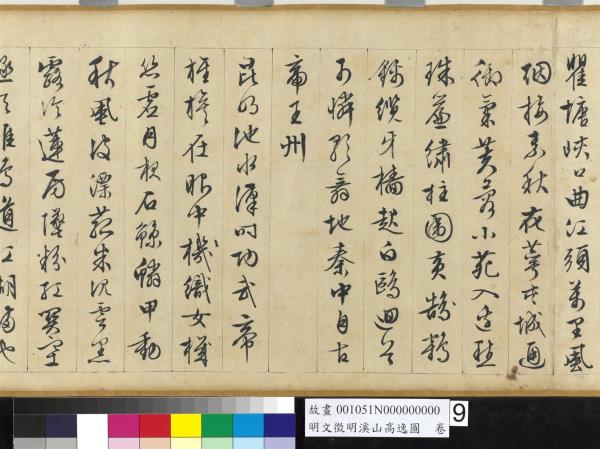 瞿塘峽口曲江頭萬里風
烟接素秋花萼夾城通
御氣芙蓉小苑入邊愁
珠簾繡柱圍黃鵠
錦纜牙檣起白鷗迴首
可憐歌舞地秦中自古
帝王州
昆明池水漢時功武帝
旌旗在眼中機織女機
絲虛月夜石鯨鱗甲動
秋風波漂菰米沉雲黑
露冷蓮房墜粉紅關塞
極天唯鳥道江湖滿地
故畫 001051N000000000
明文徵明溪山高逸圖 卷
9